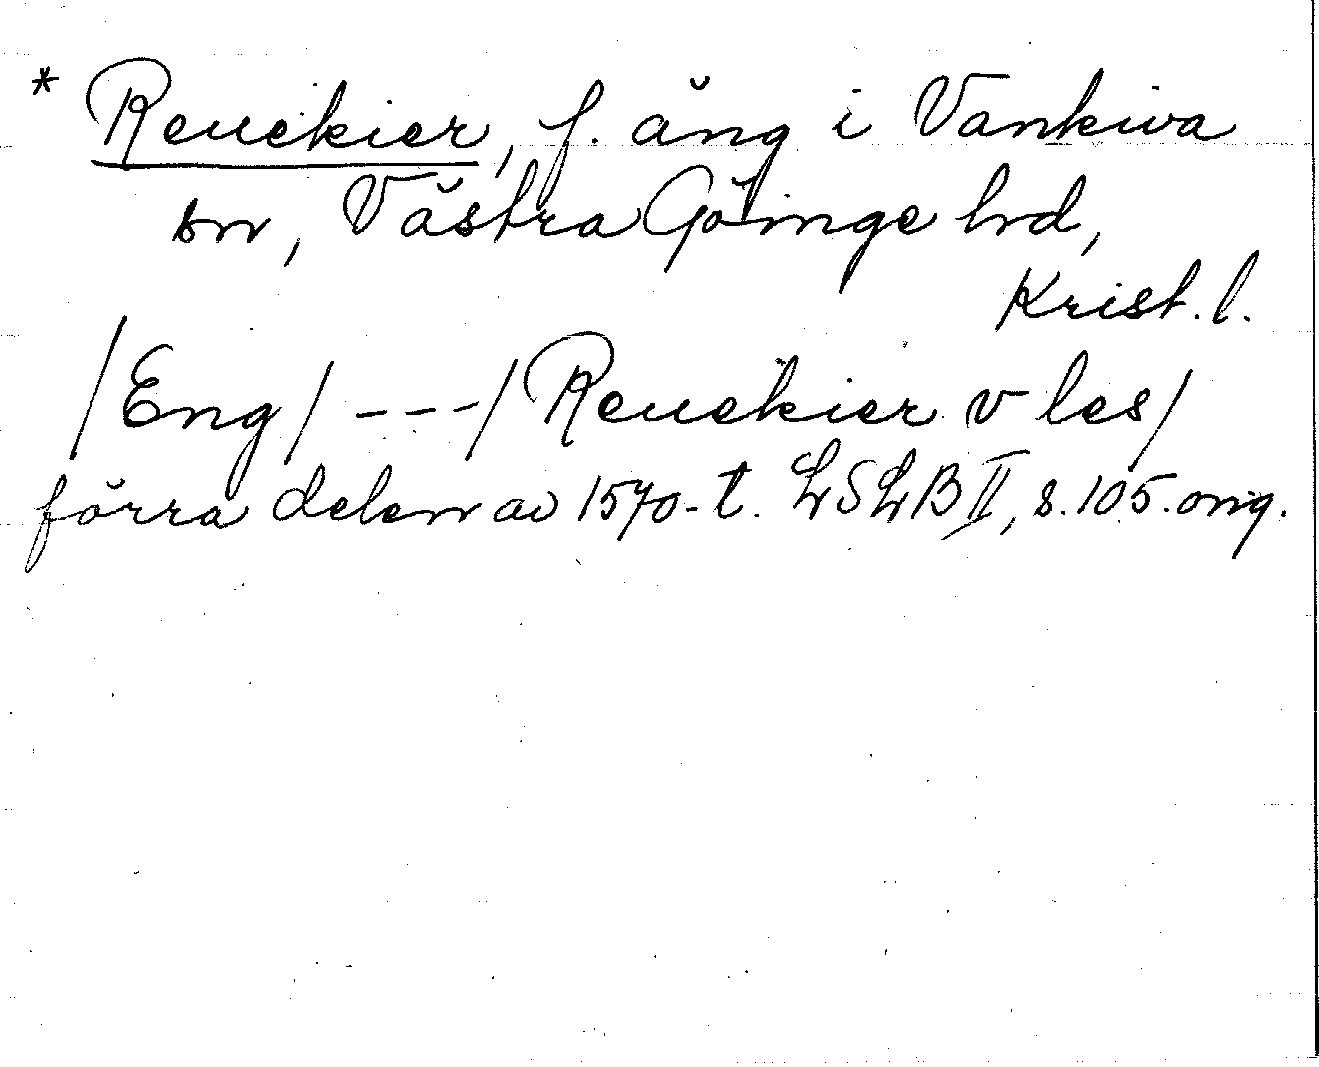 * Reuekier, f. äng i Vankiva
sn, Västra Göinge hd,
Krist. l.
/Eng/ ---/ Reuekier v les/
förra delen av 1570-t. LSLB II, s. 105. orig.